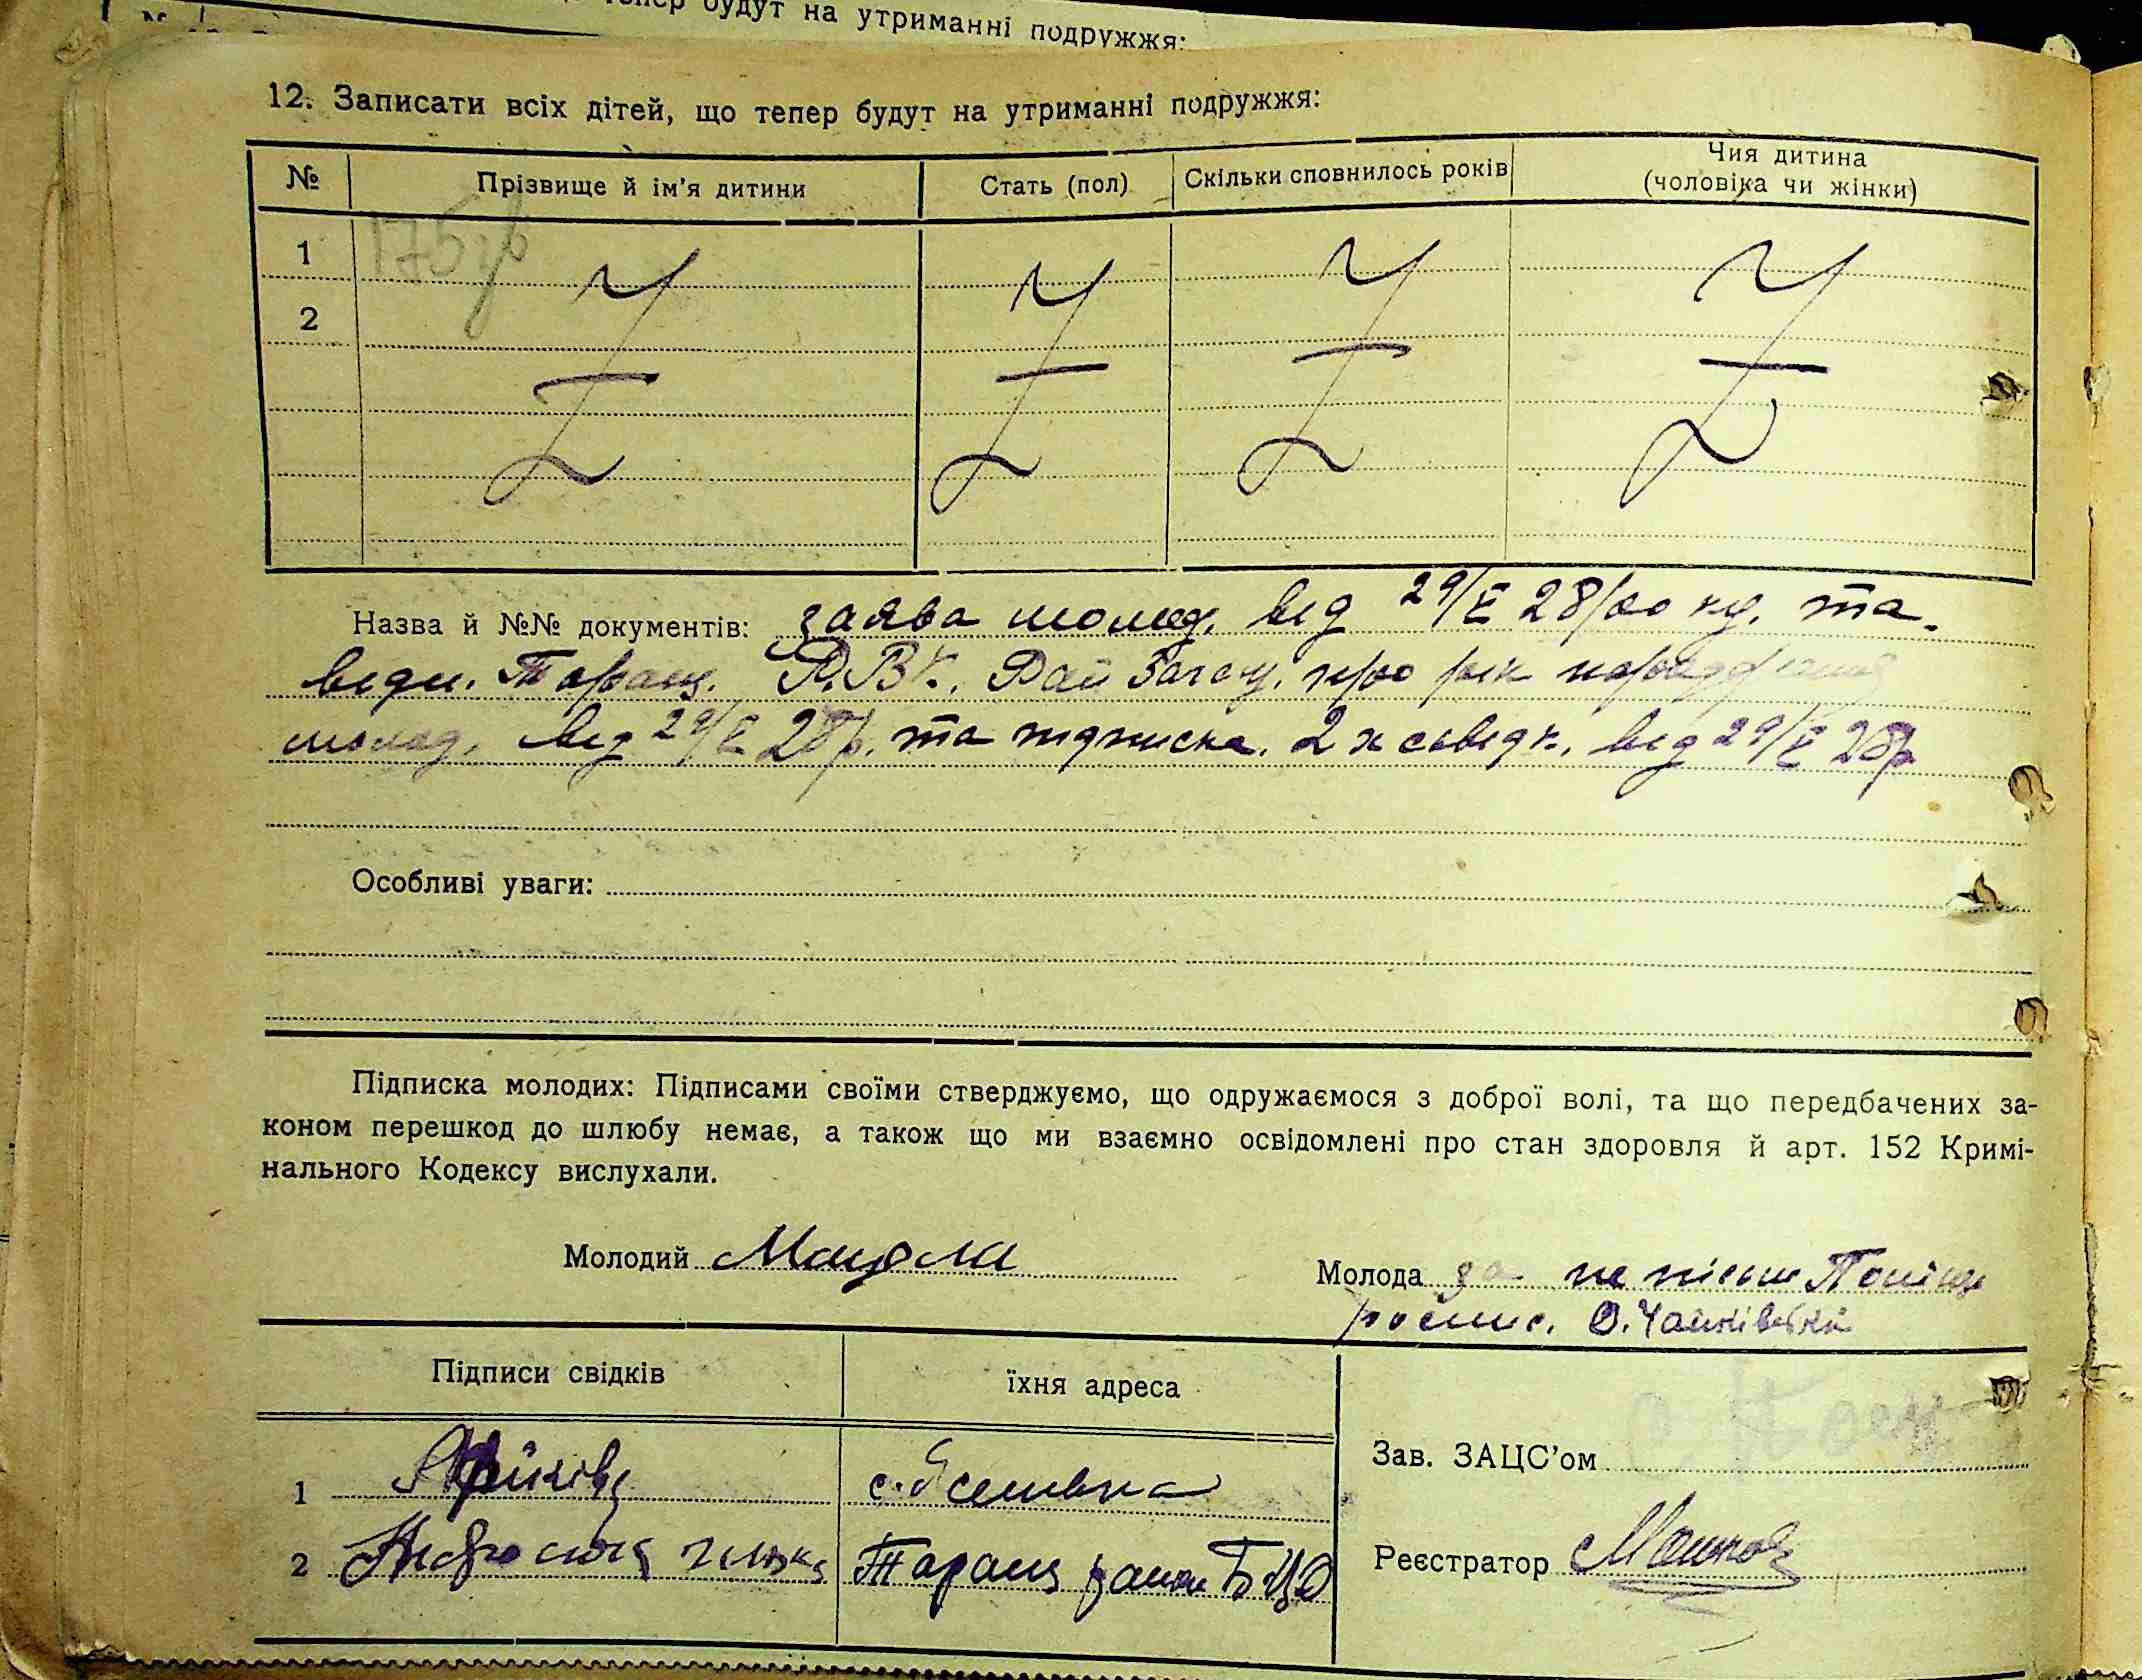 тепер будут на утриманні подружжя:
12. Записати всіх дітей, що тепер будут на утриманні подружжя:
№ Прізвище й ім'я дитини Стать (пол) Скільки сповнилось років Чия дитина (чоловіка чи жінки)
1
2
Назва й №№ документів: заява молод. від 29/V 28 року. та
види. Таращ. Р.В.К. про рік
молод. від 29/V 28р. та підписка. 2х свідк. від 29/V 28р
Особливі уваги:
Підписка молодих: Підписами своїми стверджуємо, що одружаємося з доброї волі, та що передбачених за-
коном перешкод до шлюбу немає, а також що ми взаємно освідомлені про стан здоровля й арт. 152 Кримі-
нального Кодексу вислухали.
Молодий Молода за не письм
роспис. О.
Підписи свідків їхня адреса
1 с. Ясенівка
Зав. ЗАЦС'ом
2 Таращ район БЦО
Реєстратор